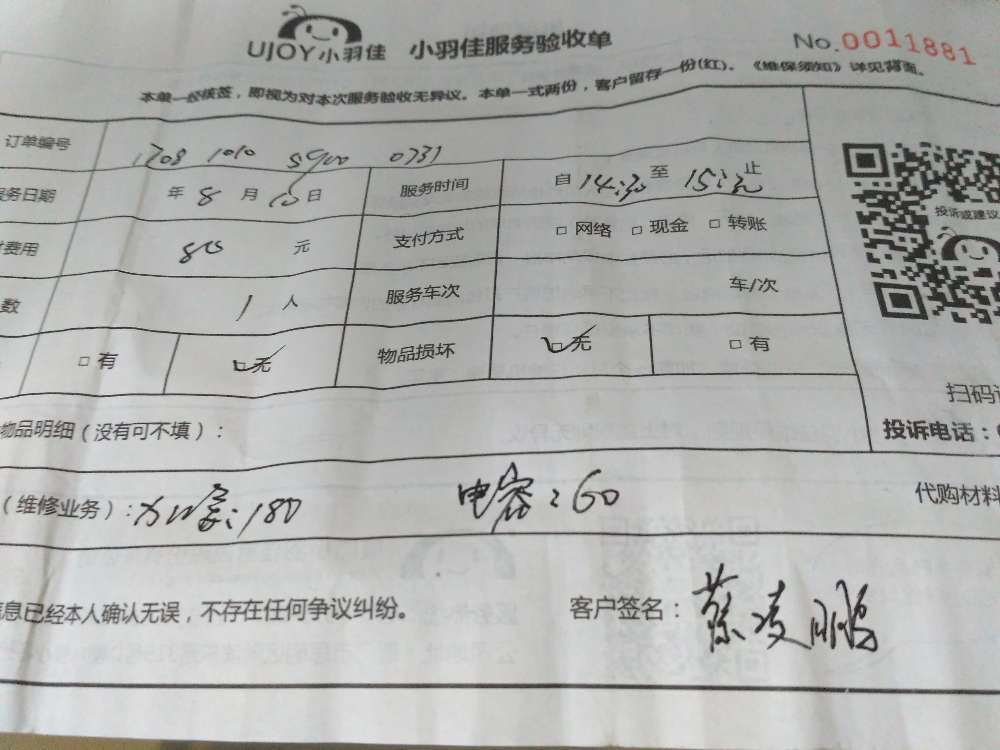 UJOY小羽佳 小羽佳服务验收单 No.0011881
本单一经核签，即视为对本次服务验收无异议。本单一式两份，客户留存一份(红)。《维保须知》详见背面。
订单编号 1708 1010 5900 0731
服务日期 年 8 月 10 日 服务时间 自 14:30 至 15:30 止
费用 80 元 支付方式 □ 网络 □ 现金 □ 转账
投诉或建议
数 1 人 服务车次 车/次
□ 有 □ 无 物品损坏 □ 无 □ 有
扫码
物品明细（没有可不填）：
投诉电话：
（维修业务）：180 电容：60 代购材料
信息已经本人确认无误，不存在任何争议纠纷。 客户签名：蔡凌鹏